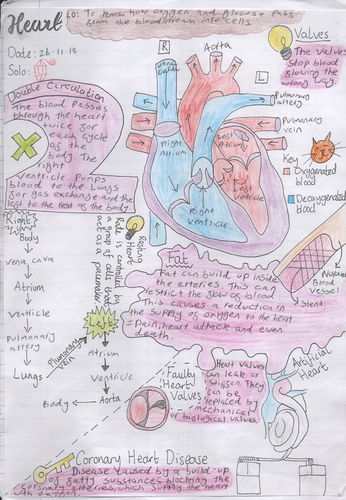 Heart
Lo: To know how oxygen and glucose pass
from the bloodstream into cells
Date: 26.11.18
Solo:
R
L
Aorta
vena
cava
Pulmonary
artery
Pulmonary
vein
Right
Atrium
Left
Atrium
Left
Ventricle
Right
Ventricle
Valves
The valves
stop blood
flowing the
wrong way
Key
Oxygenated
blood
Deoxygenated
blood
Double Circulation
The blood passes
through the heart
twice for
each cycle
of the
body. The
right
ventricle pumps
blood to the lungs
for gas exchange and the left
to the rest of the body.
Right
Body
vena cava
Atrium
Ventricle
Pulmonary
artery
Lungs
Pulmonary
vein
Left
Atrium
Ventricle
Aorta
Body
Resting
Heart
Rate is controlled by
a group of cells that
act as a pacemaker
Fat
Fat can build up inside
the arteries. This can
restrict the flow of blood
This causes a reduction in
the supply of oxygen to the heart
= Pain, heart attack and even
death.
Blood
vessel
Stent
Faulty
Heart
Valves
Heart valves
can leak or
stiffen. They
can be
replaced by
mechanical
or biological valves.
Artificial
Heart
Coronary Heart Disease
Disease caused by a build-up
of fatty substances blocking the
coronary arteries, which supply the heart
with oxygen.